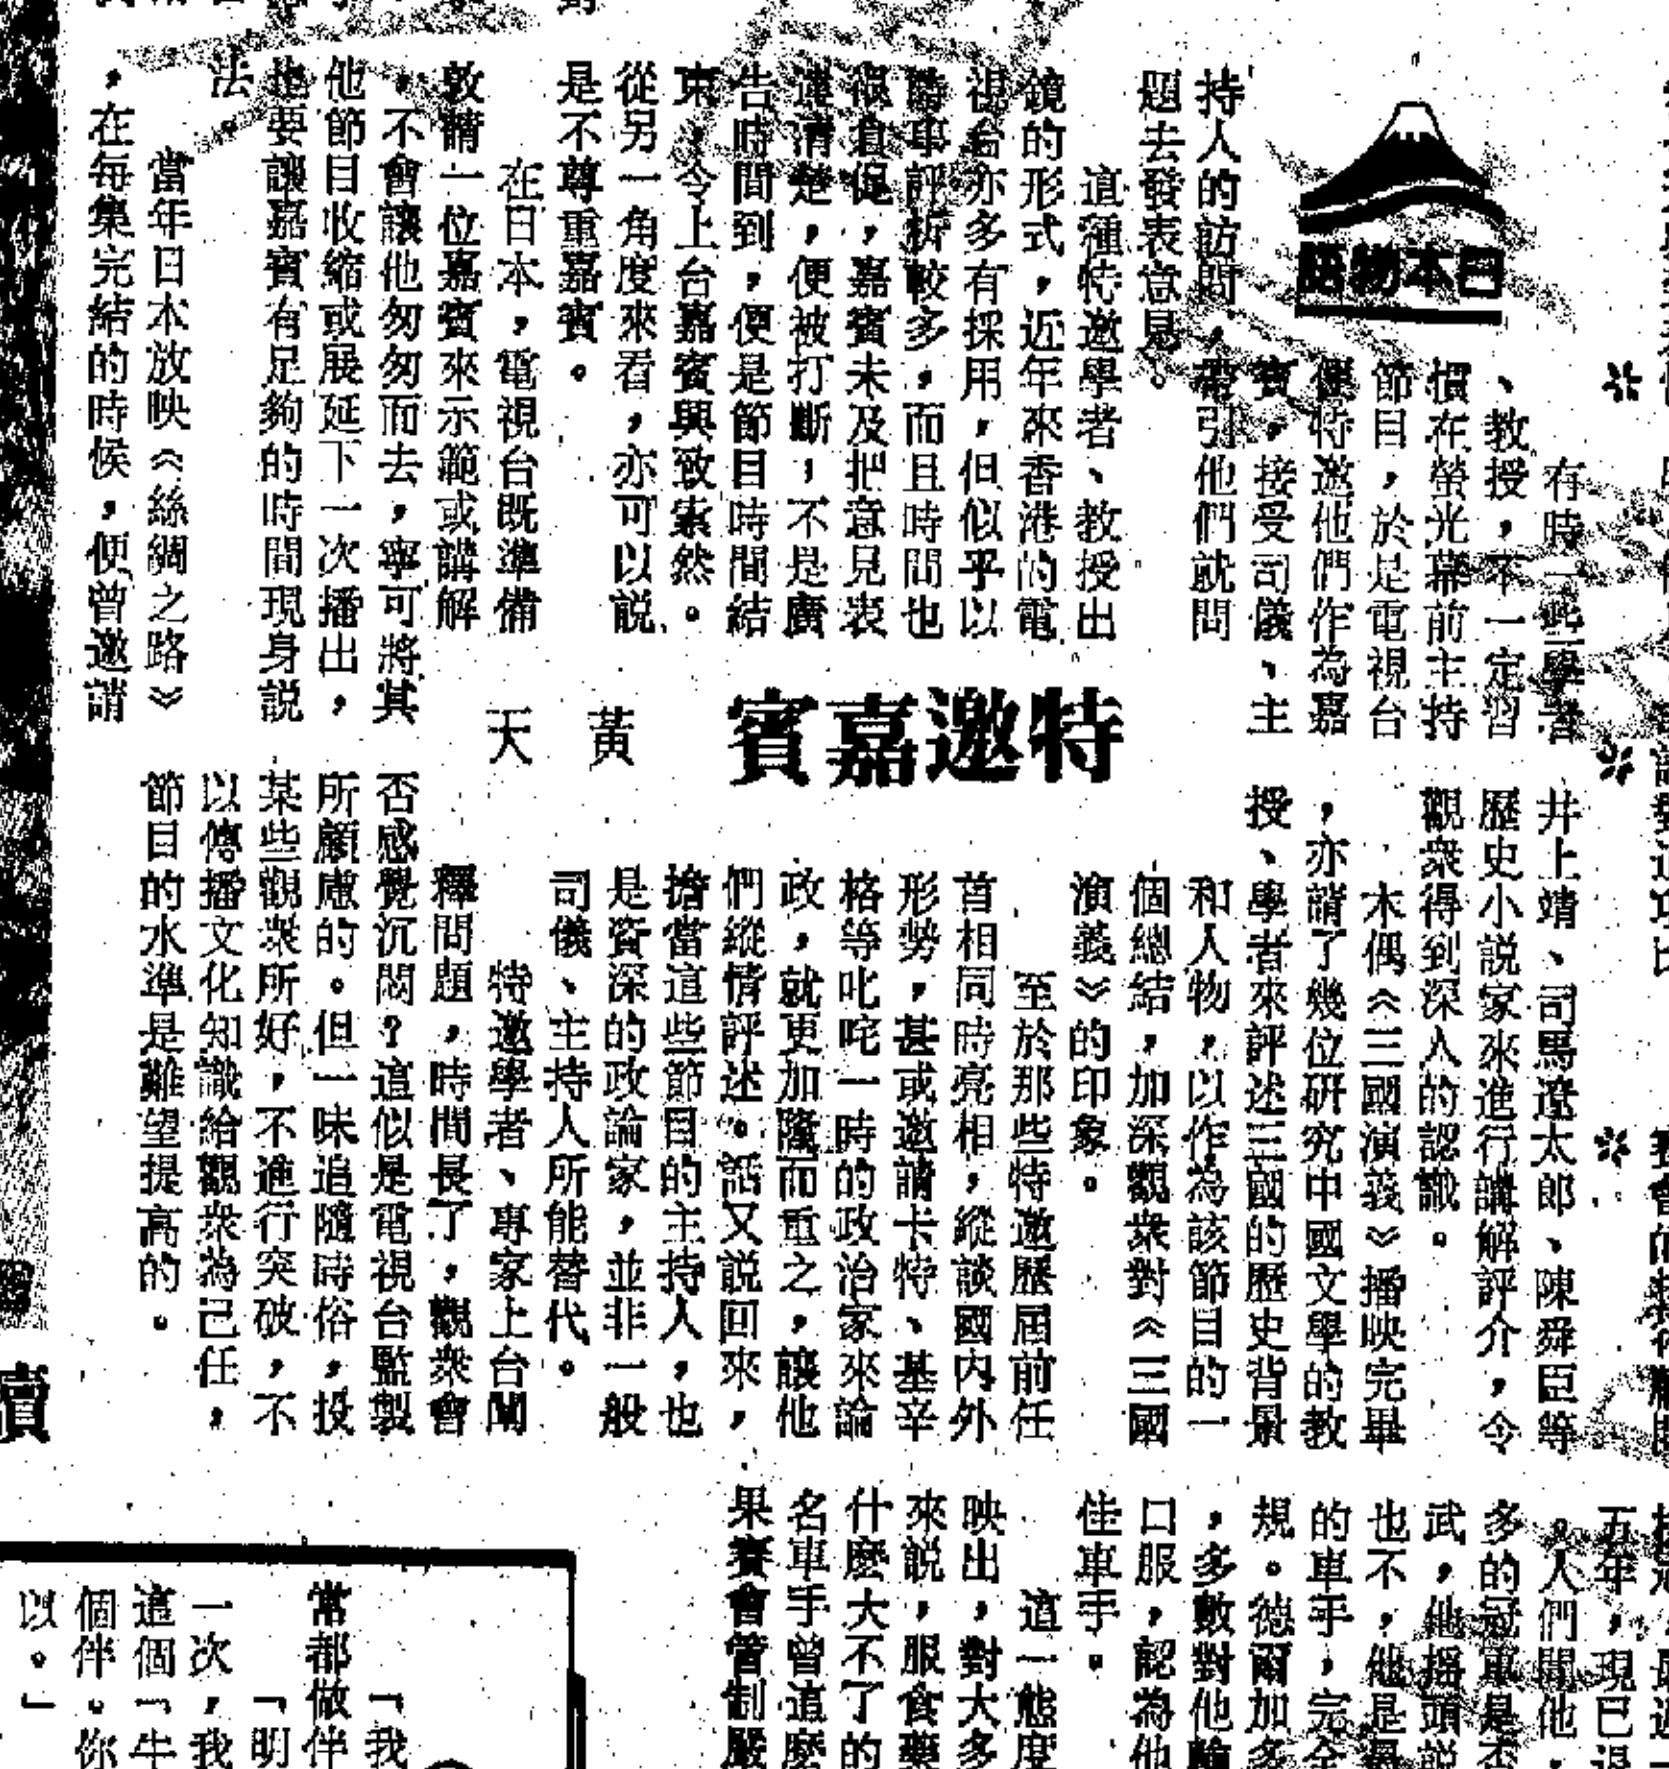 日本物語
特邀嘉賓
黃天
有時一些學者
、教授，不一定習
慣在螢光幕前主持
節目，於是電視台
便特邀他們作為嘉
賓，接受司儀、主
持人的訪問，帶引他們就問
題去發表意見。
這種特邀學者、教授出
鏡的形式，近年來香港的電
視台亦多有採用，但似乎以
時事評析較多，而且時間也
很倉促，嘉賓未及把意見表
達清楚，便被打斷，不是廣
告時間到，便是節目時間結
束，令上台嘉賓興致索然。
從另一角度來看，亦可以說
是不尊重嘉賓。
在日本，電視台既準備
敦請一位嘉賓來示範或講解
，不會讓他匆匆而去，寧可將其
他節目收縮或展延下一次播出，
也要讓嘉賓有足夠的時間現身說
法。
當年日本放映《絲綢之路》
，在每集完結的時候，便曾邀請
井上靖、司馬遼太郎、陳舜臣等
歷史小說家來進行講解評介，令
觀衆得到深入的認識。
木偶《三國演義》播映完畢
，亦請了幾位研究中國文學的教
授、學者來評述三國的歷史背景
和人物，以作為該節目的一
個總結，加深觀衆對《三國
演義》的印象。
至於那些特邀歷屆前任
首相同時亮相，縱談國內外
形勢，甚或邀請卡特、基辛
格等叱咤一時的政治家來論
政，就更加隆而重之，讓他
們縱情評述。話又説回來，
擔當這些節目的主持人，也
是資深的政論家，並非一般
司儀、主持人所能替代。
特邀學者、專家上台闡
釋問題，時間長了，觀衆會
否感覺沉悶？這似是電視台監製
所顧慮的。但一味追隨時俗，投
某些觀衆所好，不進行突破，不
以傳播文化知識給觀衆為己任，
節目的水準是難望提高的。
五年，現已退
。人們問他，
多的冠軍是否
武，他搖頭說
也不，他是最
的車手，完全
規。德爾加多
，多數對他
口服，認為他
佳車手。
這一態度
映出，對大多
來說，服食藥
什麼大不了的
名車手曾這麼
果賽會管制嚴
「我
常都做伴
「明
一次，我
這個「牛
個伴。你
以。」